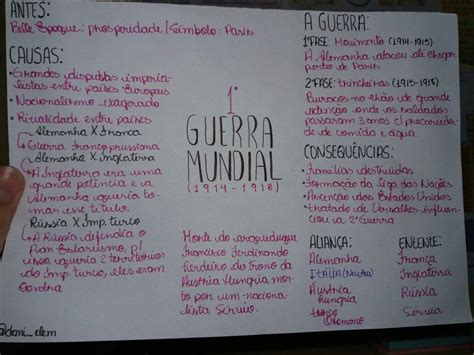 ANTES:
Belle Epoque: prosperidade / Símbolo: Paris
CAUSAS:
• Grandes disputas imperia-
listas entre países Europeus
• Nacionalismo exagerado
• Rivalidade entre países
Alemanha X França
↳ Guerra franco prussiana
Alemanha X Inglaterra
↳ A Inglaterra era uma
grande potência e a
Alemanha queria to-
mar esse título.
Rússia X Imp. turco
↳ A Rússia defendia o
Pan Eslavismo, p/
isso queria 2 territórios
do Imp. turco, eles eram
contra
@dani_elem
1ª
GUERRA
MUNDIAL
(1914-1918)
Morte do arquiduque
Francisco Ferdinando
herdeiro do trono da
Austria Hungria mor-
to por um naciona-
lista Sérvio.
A GUERRA:
1ª FASE: Movimento (1914-1915)
A Alemanha atacou até chegar
perto de Paris
2ª FASE: trincheiras (1915-1918)
Buracos no chão de grande
extensão onde os soldados
passaram 3 anos c/ precariedade
de comida e água.
CONSEQUÊNCIAS:
• Famílias destruídas
• Formação da Liga das Nações
• Ascenção dos Estados Unidos
• tratado de Versalhes influen-
ciou a 2ª Guerra
ALIANÇA:
Alemanha
ITALIA (Neutra)
Austria
hungria
Otomano
ENTENTE:
França
Inglaterra
Rússia
Sérvia